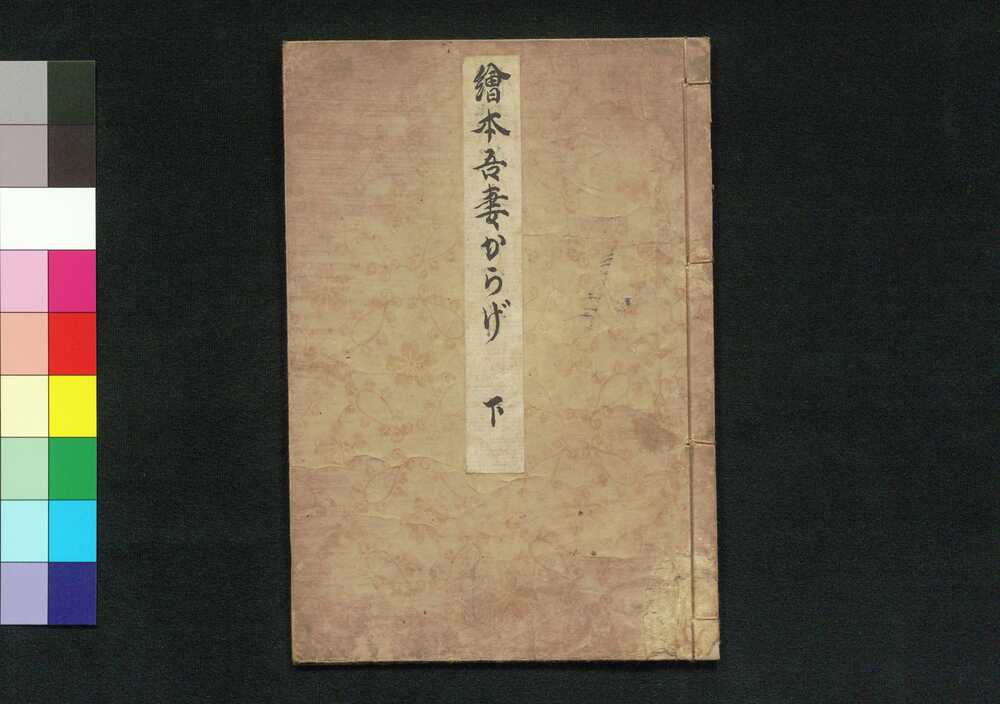 繪本吾妻からげ
下